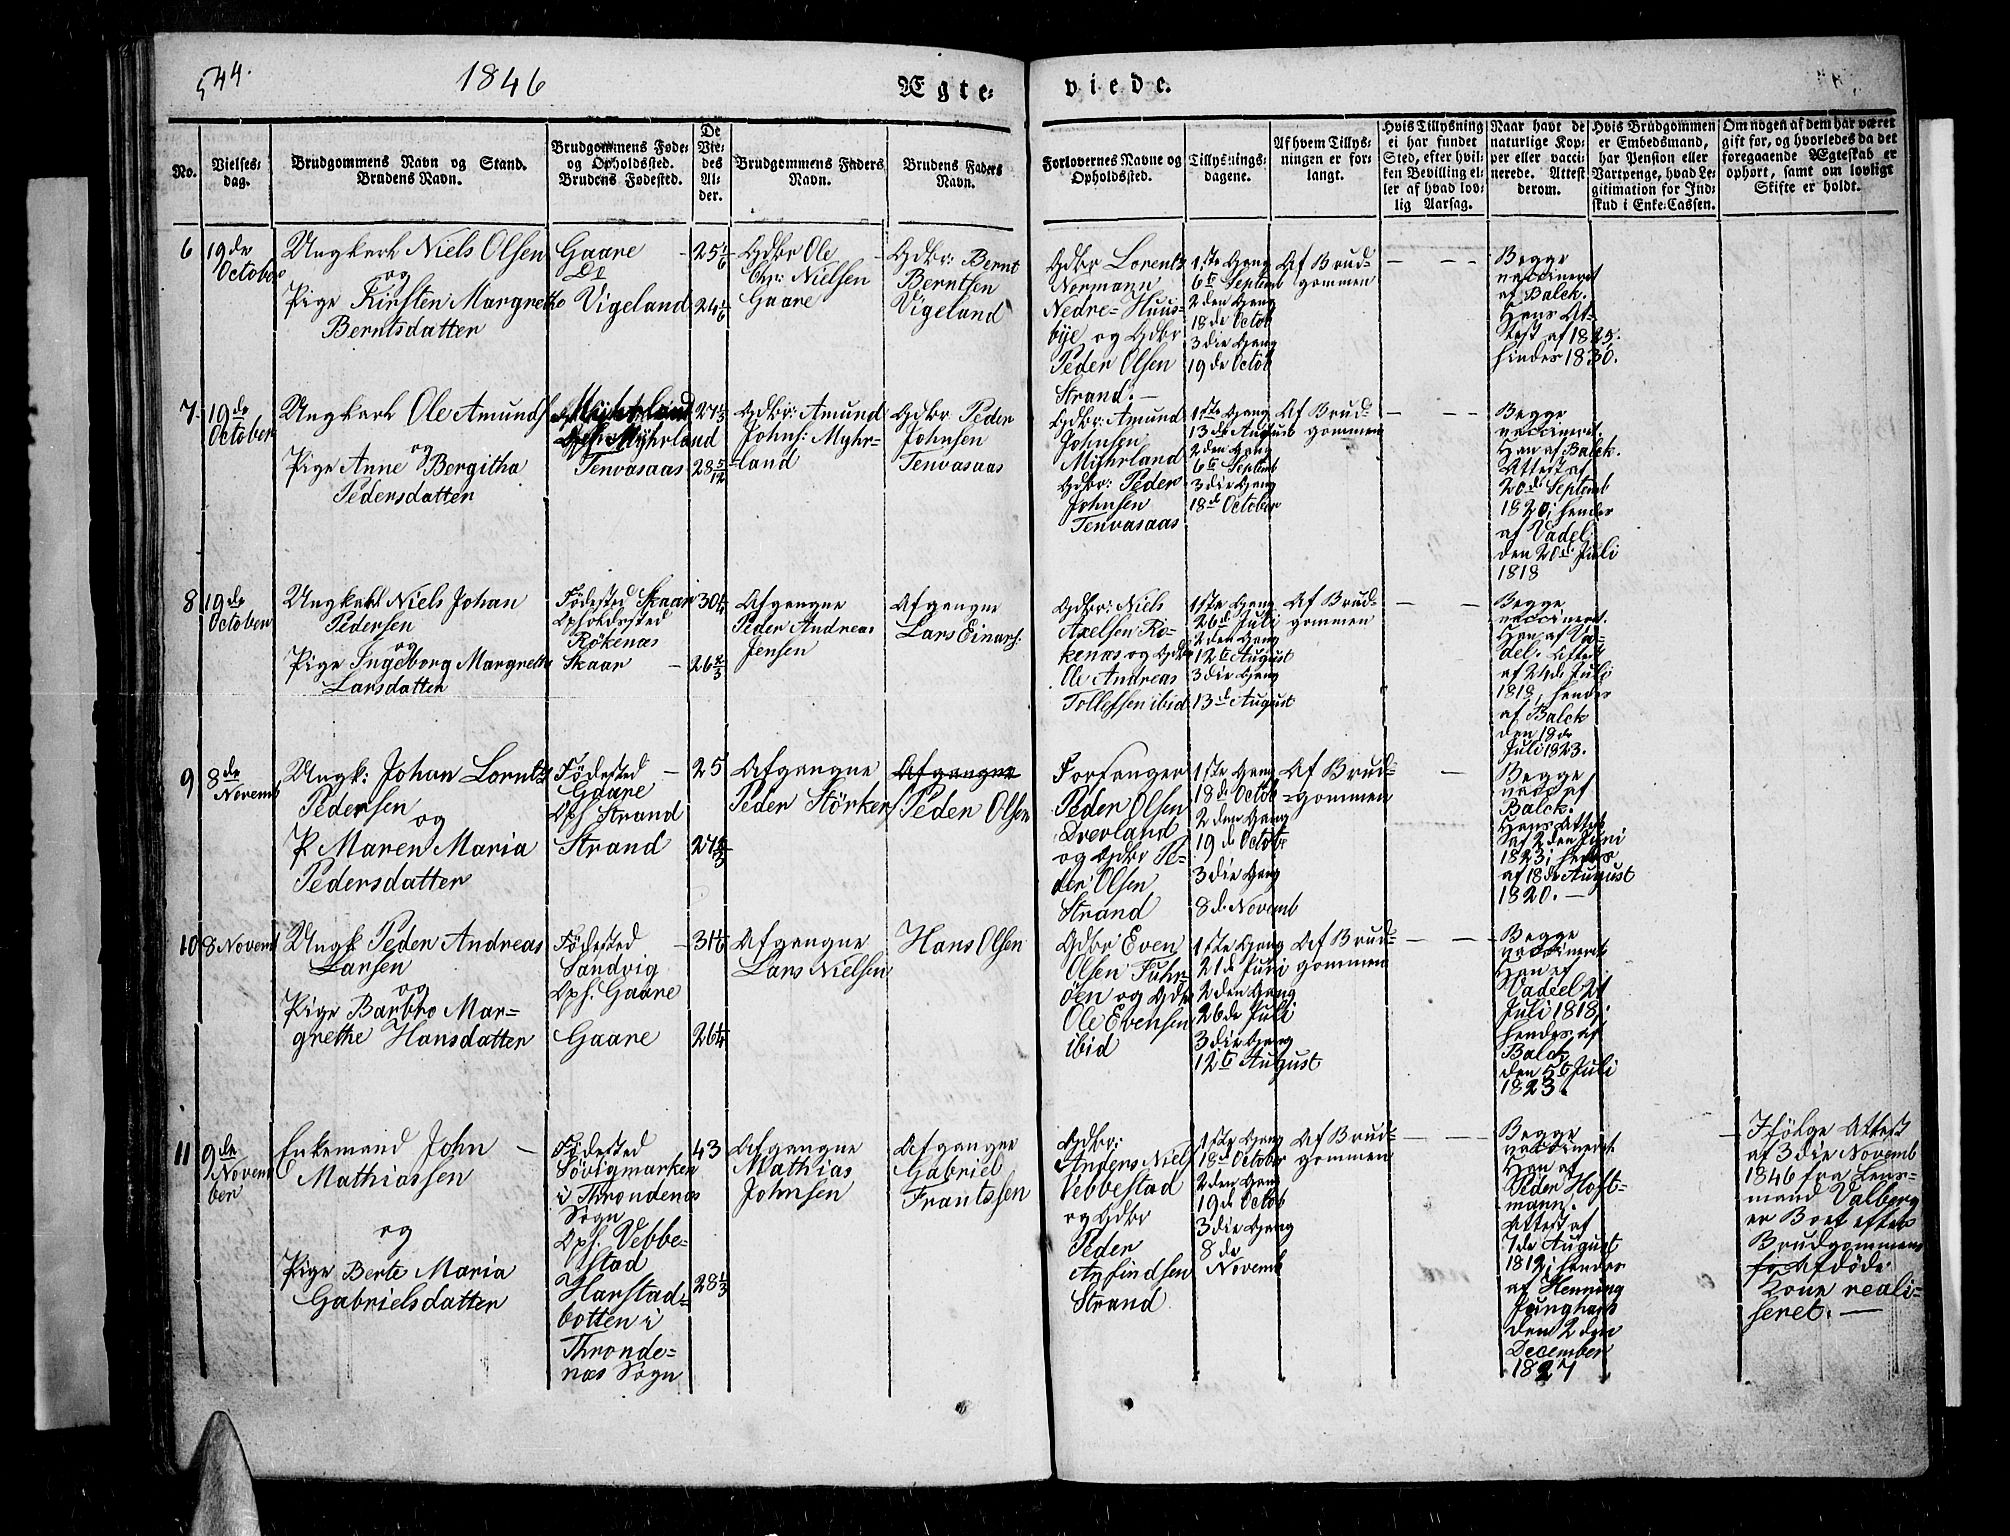 544.
1846
Ægte-
viede.
No.
Vielses-
dag.
Brudgommens Navn og Stand.
Brudens Navn.
Brudgommens Føde-
og Opholdssted.
Brudens Fødested.
De
Vie-
des
Al-
der.
Brudgommens Faders
Navn.
Brudens Faders
Navn.
Forlovernes Navne og
Opholdssted.
Tillysnings-
dagene.
Af hvem Tillys-
ningen er for-
langt.
Hvis Tillysning
ei har fundet
Sted, efter hvil-
ken Bevilling el-
ler af hvad lov-
lig Aarsag.
Naar havt de
naturlige Kop-
per eller vacci-
nerede. Attest
derom.
Hvis Brudgommen
er Embedsmand,
har Pension eller
Vartpenge, hvad Le-
gitimation for Ind-
skud i Enke-Cassen.
Om nogen af dem har været
gift før, og hvorledes da det
foregaaende Ægteskab er
ophørt, samt om lovligt
Skifte er holdt.
6
19de
October
Ungkarl Niels Olsen
og
Pige Kirsten Margrethe
Berntsdatter
Gaare
Do
Vigeland
25 1/6
24 1/6
Gdbr Ole
Chr: Nielsen
Gaare
Gdbr: Bernt
Berntsen
Vigeland
Gdbr Lorents
Normann
Nedre-Huus-
bye og Gdbr
Peder Olsen
Strand. -
1ste Gang
6te Septemb
2den Gang
18de Octob
3die Gang
19de Octob
Af Brud-
gommen
Begge
vaccineret
af Balck.
Hans At-
test af 1825.
hindes 1830.
7
19de
October
Ungkarl Ole Amunds
og
Pige Anne Bergitha
Pedersdatter
Myhrland
Oph. Myhrland
Tenvasaas
27 1/3
28 5/12
Gdbr: Amund
Johns: Myhr-
land
Gdbr Peder
Johnsen
Tenvasaas
Gdbr: Amund
Johnsen
Myhrland
Gdbr: Peder
Johnsen
Tenvasaas
1ste Gang
13de August
2den Gang
6te Septemb
3die Gang
18de October
Af Brud-
gommen
Begge
vaccineret.
Han af Balck.
Attest af
20de Septemb
1820; hendes
af Vadel.
den 20de Juli
1818
8
19de
October
Ungkarl Niels Johan
Pedersen
og
Pige Ingeborg Margrethe
Larsdatter
Fødested Skaar
Opholdssted
Rökenæs
Skaar
30 1/4
26 2/3
Afgangne
Peder Andreas
Jensen
Afgangne
Lars Einars:
Gdbr: Niels
Axelsen Rö-
kenæs og Gdbr
Ole Andreas
Tollefsen ibid
1ste Gang
26de Juli
2den Gang
12te August
3die Gang
13de August
Af Brud-
gommen
Begge
vaccineret.
Han af Va-
del. Attest
af 24de Juli
1818, hendes
af Balck
den 18de
Juli 1823.
9
8de
Novemb
Ungk: Johan Lorntz
Pedersen
og
P. Maren Maria
Pedersdatter
Fødested
Gaare
Oph Strand
Strand
25
27 2/3
Afgangne
Peder Störkers
Afgangne
Peder Olsen
Forsanger
Peder Olsen
Dverland
og Gdbr Pe-
der Olsen
Strand
1ste Gang
18de Octob
2den Gang
19de Octob
3die Gang
8de Novemb
Af Brud-
gommen
Begge
vacc af
Balck.
Hans Attest
af 2den Juni
1823; hendes
af 18de August
1820. -
10
8 Novemb
Ungk Peder Andreas
Larsen
og
Pige Barbro Mar-
grethe Hansdatter
Fødested
Sandvig
Oph. Gaare
Gaare
31 1/6
26 1/4
Afgangne
Lars Nielsen
Hans Olsen
Gdbr Even
Olsen Fuhr-
öen og Gdbr
Ole Evensen
ibid
1ste Gang
21de Juni
2den Gang
26de Juli
3die Gang
12te August
Af Brud-
gommen
Begge
vaccineret
Han af
Vadeel 21
Juli 1818;
hendes af
Balck
den 5te Juli
1823.
11
9de
Novem-
ber
Enkemand John
Mathiassen
og
Pige Berte Maria
Gabrielsdatter
Fødested
Sövigmarken
i Throndenæs
Sogn
Oph. Vebbe-
stad
Harstad-
botten i
Thronde-
næs Sogn
43
28 1/3
Afgangne
Mathias
Johnsen
Afgangne
Gabriel
Frantssen
Gdbr:
Anders Niels
Vebbestad
og Gdbr
Peder
Anfindsen
Strand
1ste Gang
18de October
2den Gang
19de Octob
3die Gang
8de
Novemb
Af Brud-
gommen
Begge
vaccineret.
Han af
Peder Hoft-
mann.
Attest af
7de August
1812; hendes
af Henning
Junghans
den 2den
December
1827
Ifölge Attest
af 3die Novemb
1846 fra Lens-
mand Valberg
er Boet efter
Brudgommens
for Afdöde
Kone reali-
seret. -